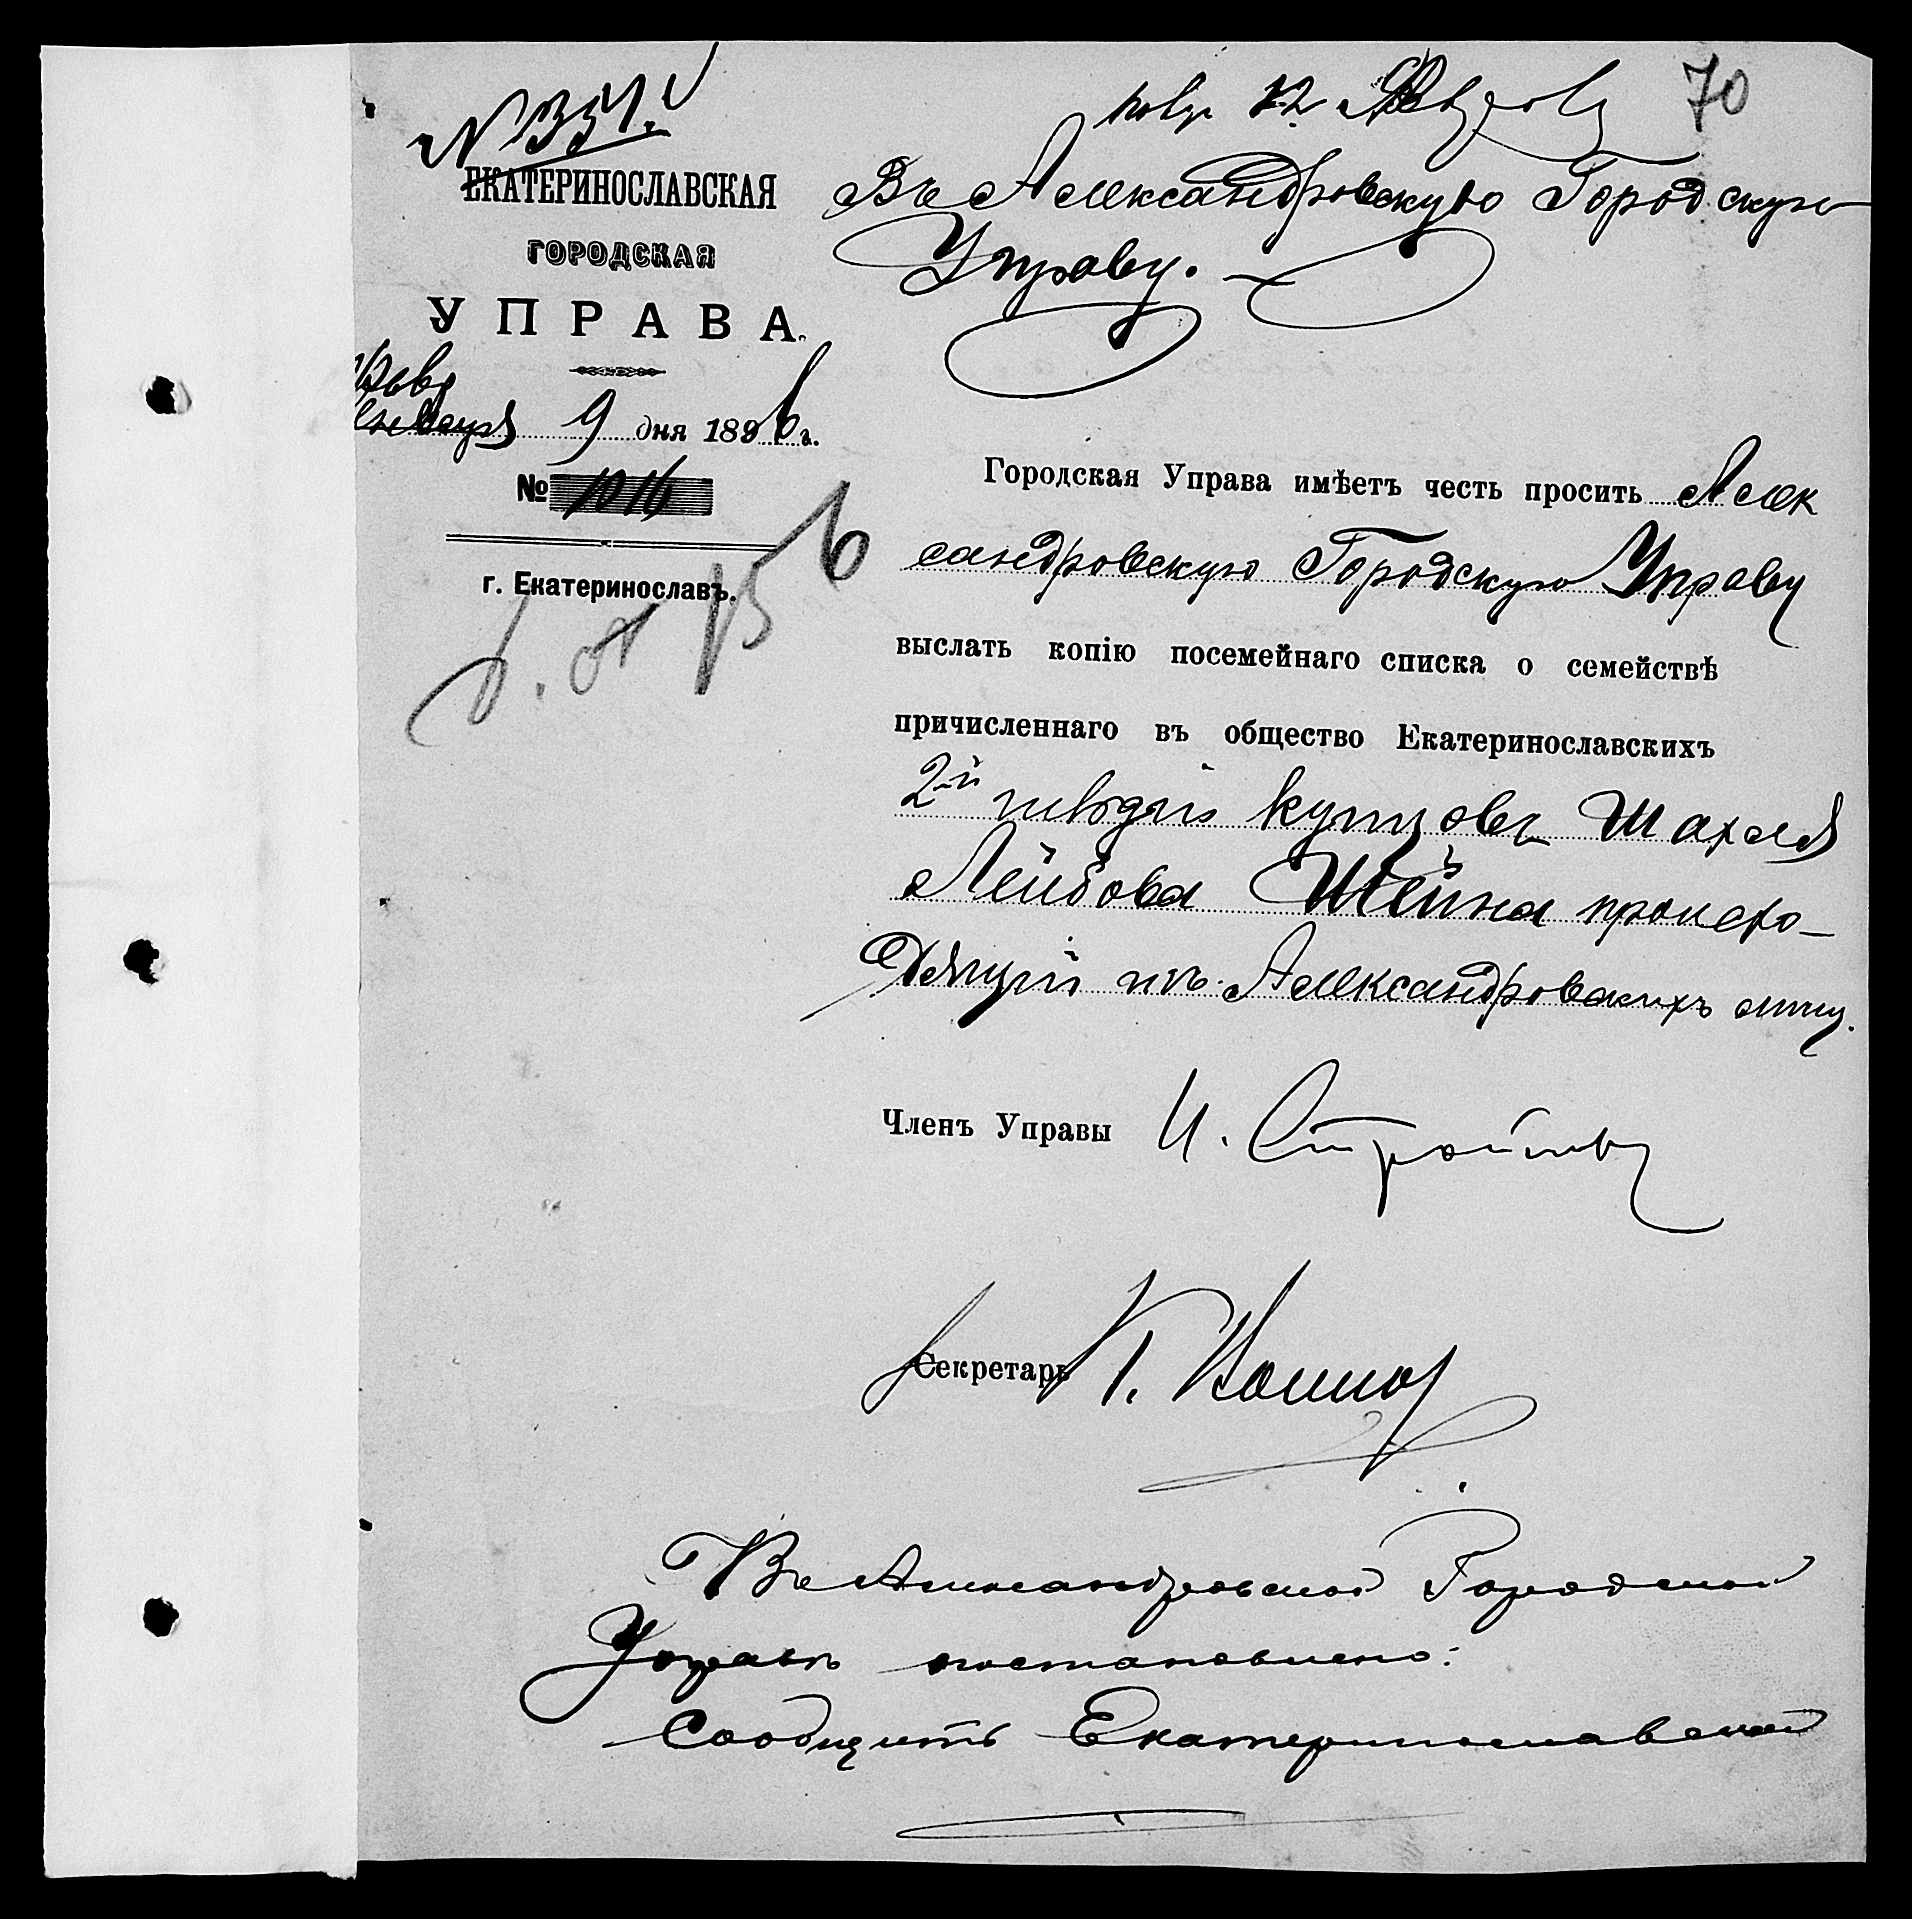 70
№ 331.
ЕКАТЕРИНОСЛАВСКАЯ
ГОРОДСКАЯ
УПРАВА.
Февр
Января 9 дня 1896 г.
№ 1016
г. Екатеринославъ.
Въ Александровскую Городскую
Управу.
Городская Управа имѣетъ честь просить Алек
сандровскую Городскую Управу
выслать копію посемейнаго списка о семействѣ
причисленнаго въ общество Екатеринославскихъ
2-й гильдіи купцовъ Шахея
Лейбова Штейна происхо-
дящій изъ Александровскихъ мѣщ.
Членъ Управы И.
Секретарь К.
Въ Александровской Городской
Управѣ постановлено:
Сообщить Екатеринославской